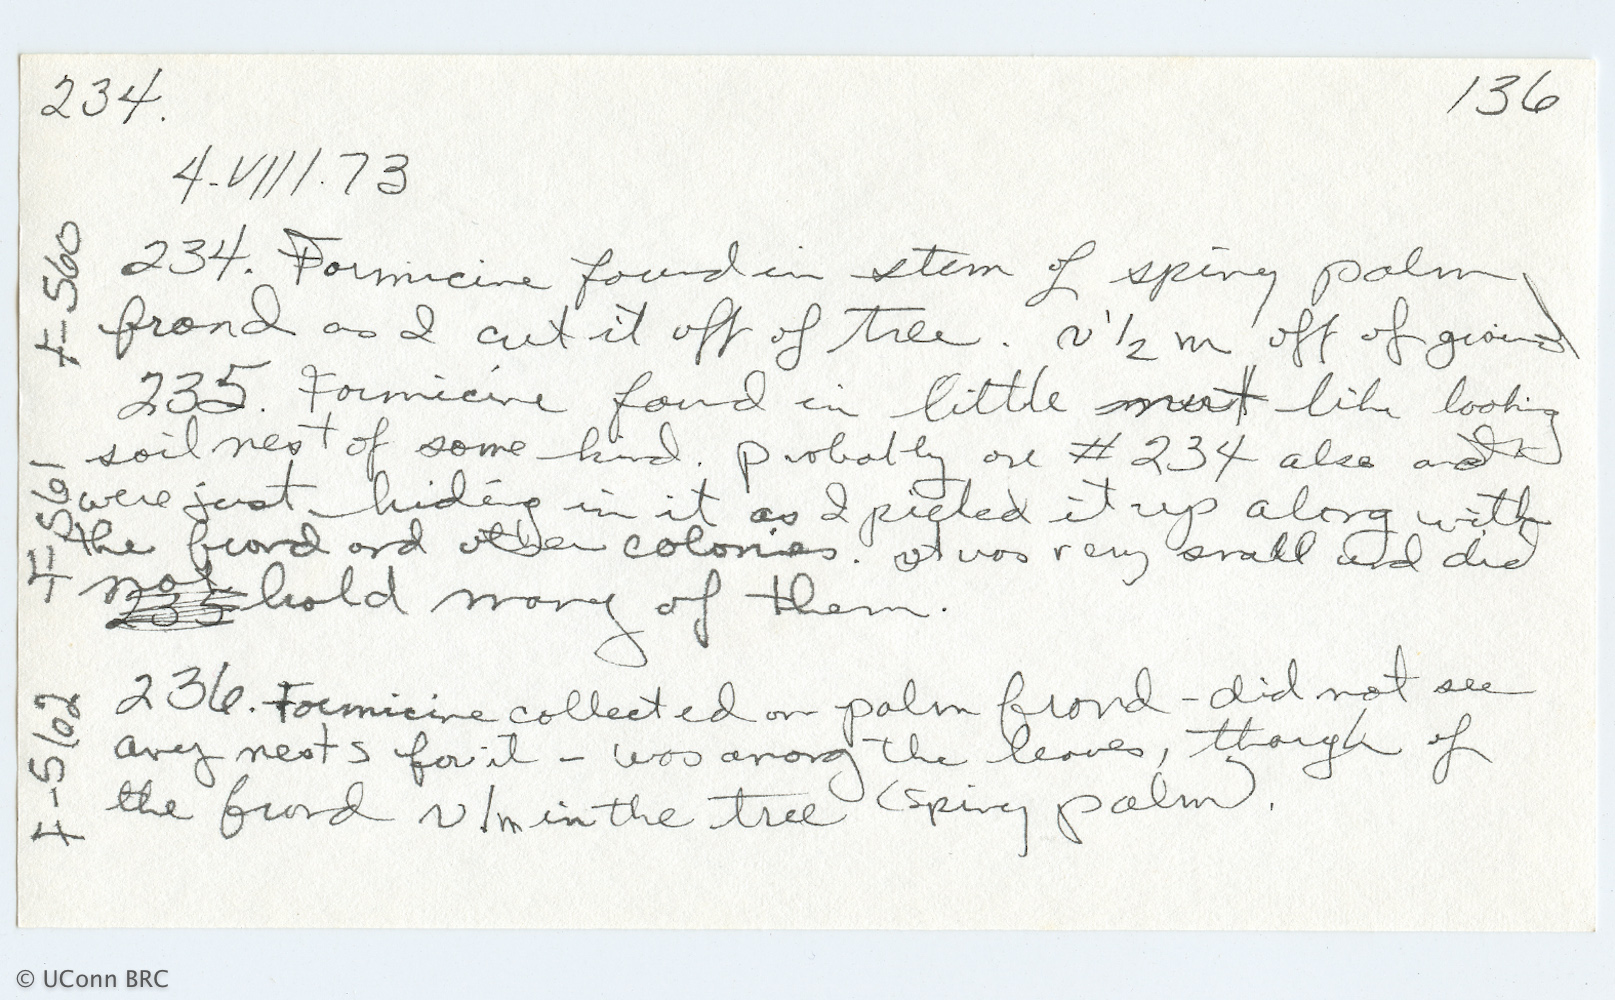 234.
136
4-VIII.73
F-560
234. Formicine found in stem of spiny palm
frond as I cut it off of tree. ~ 1/2 m off of ground
F-561
235. Formicine found in little like looking
soil nest of some kind. Probably are #234 also and
were just hiding in it as I picked it up along with
the frond and other colonies. It was very small and did
not hold many of them.
235
F-562
236. Formicine collected on palm frond - did not see
any nests for it - was among the leaves, though of
the frond ~ 1m in the tree (spiny palm).
© UConn BRC